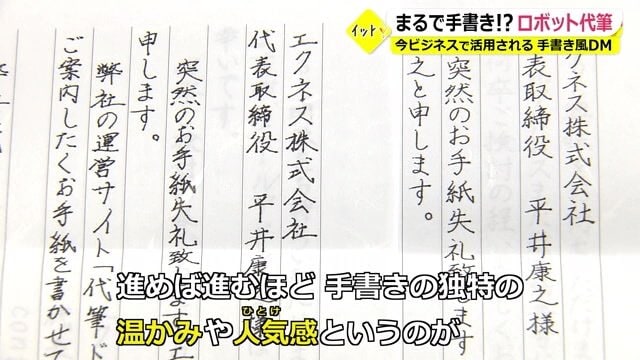 イット!
まるで手書き!? ロボット代筆
今ビジネスで活用される 手書き風DM
ネス株式会社
表取締役 平井康之様
突然のお手紙失礼致
之と申します。
エクネス株式会社
代表取締役 平井康
突然のお手紙失礼致します。エ
申します。
弊社の運営サイト「代筆ド
ご案内したくお手紙を書かせて
進めば進むほど 手書きの独特の
ひとけ
温かみや人気感というのが